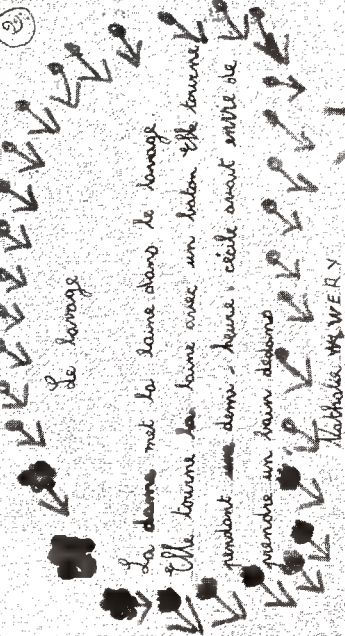 Le lavage
La dame met la laine dans le lavage
Elle tourne la laine avec un baton Elle tourne
pendant une demi-heure. cécile avait envie de
prendre un bain dedans
Nathalie WERY